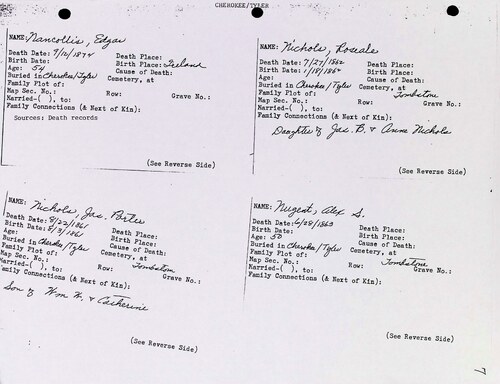 CHEROKEE/TYLER
NAME: Nancollis, Edgar
Death Date: 9/16/1874 Death Place:
Birth Date: Birth Place: Ireland
Age: 54 Cause of Death:
Buried in Cherokee/Tyler Cemetery, at
Family Plot of:
Map Sec. No.: Row: Grave No.:
Married-( ), to:
Family Connections (& Next of Kin):
Sources: Death records
(See Reverse Side)
NAME: Nichols, Rosale
Death Date: 7/27/1862 Death Place:
Birth Date: 1/18/1862 Birth Place:
Age: Cause of Death:
Buried in Cherokee/Tyler Cemetery, at
Family Plot of: Tombstone
Map Sec. No.: Row: Grave No.:
Married-( ), to:
Family Connections (& Next of Kin):
Daughter of Jas. B. & Anne Nichols
(See Reverse Side)
NAME: Nichols, Jas. Porter
Death Date: 8/22/1861 Death Place:
Birth Date: 8/3/1861 Birth Place:
Age: Cause of Death:
Buried in Cherokee/Tyler Cemetery, at
Family Plot of: Tombstone
Map Sec. No.: Row: Grave No.:
Married-( ), to:
Family Connections (& Next of Kin):
Son of Wm W. & Catherine
(See Reverse Side)
NAME: Nugent, Alex S.
Death Date: 6/28/1863 Death Place:
Birth Date: Birth Place:
Age: 50 Cause of Death:
Buried in Cherokee/Tyler Cemetery, at
Family Plot of: Tombstone
Map Sec. No.: Row: Grave No.:
Married-( ), to:
Family Connections (& Next of Kin):
(See Reverse Side)
7